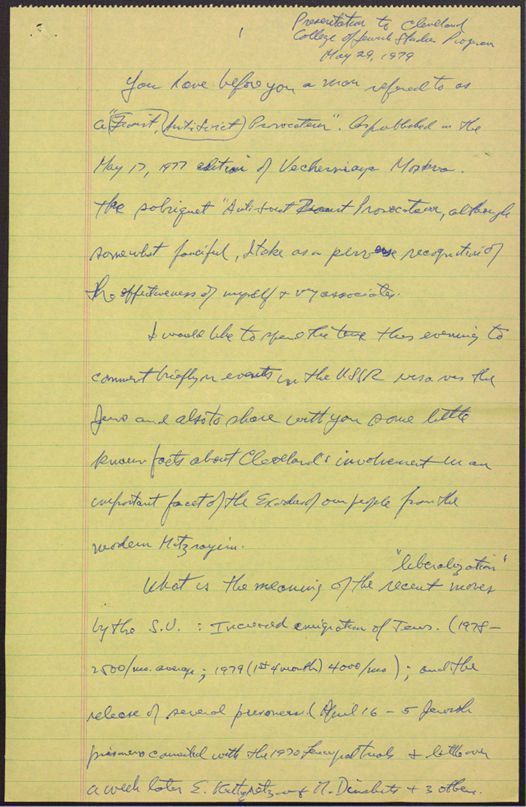 1
Presentation to Cleveland
College of Jewish Studies Program
May 29, 1979
You have before you a man referred to as
a "Zionist, Antisoviet Provocateur". As published in the
May 17, 1977 edition of Vechernaya Moskva.
The sobriquet "Anti-soviet Zionist Provocateur, although
somewhat fanciful, I take as a perverse recognition of
the effectiveness of myself + my associates.
I would like to spend the time this evening to
comment briefly on events in the USSR vis a vis the
Jews and also to share with you some little
known facts about Cleveland's involvement in an
important facet of the Exodus of our people from the
modern Mitzrayim.
"liberalization"
What is the meaning of the recent moves
by the S.U. : Increased emigration of Jews. (1978-
2500/mo. average ; 1979 (1st 4 month) 4000/mo) ; and the
release of several prisoners. (April 16 - 5 Jewish
prisoners connected with the 1970 Leningrad trials + little over
a week later E. Kuznetz + M. Dimshits + 3 others.